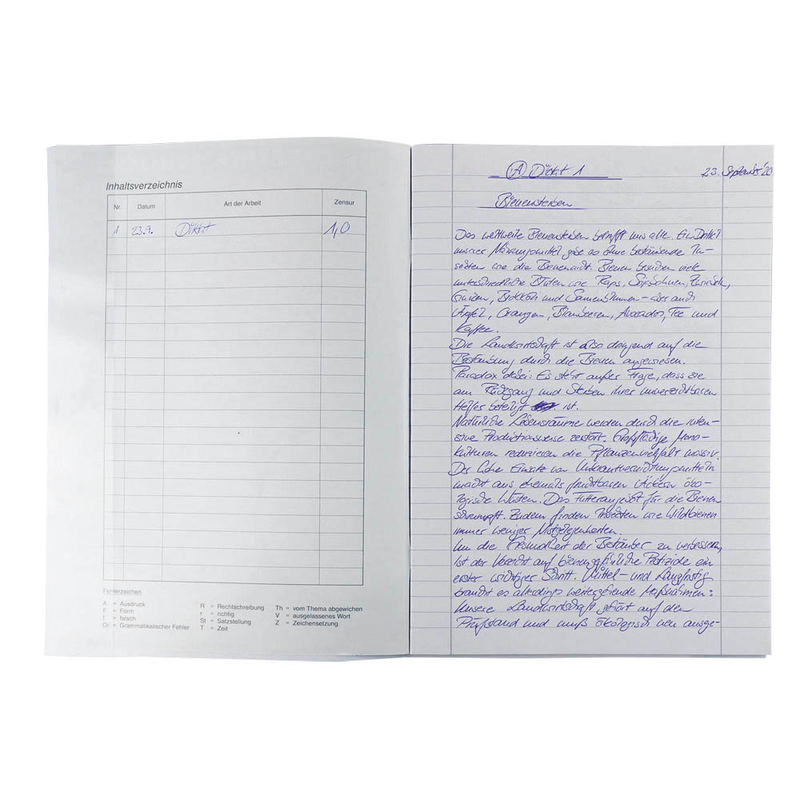 Inhaltsverzeichnis
Nr. Datum Art der Arbeit Zensur
1 23.9. Diktat 1,0
Fehlerzeichen
A = Ausdruck
F = Form
f = falsch
Gr = Grammatikalischer Fehler
R = Rechtschreibung
r = richtig
St = Satzstellung
T = Zeit
Th = vom Thema abgewichen
V = ausgelassenes Wort
Z = Zeichensetzung
1 Diktat 1 23. September '20
Bienensterben
Das weltweite Bienensterben betrifft uns alle. Ein Drittel
unserer Nahrungsmittel gäbe es ohne bestäubende In-
sekten wie die Biene nicht. Bienen besuchen viele
unterschiedliche Blüten wie Raps, Sojabohnen,
Gurken, Brokkoli und Sonnenblumen - aber auch
Äpfel, Orangen, Blaubeeren, Avocados, Tee und
Kaffee.
Die Landwirtschaft ist also dringend auf die
Bestäubung durch die Bienen angewiesen.
Paradox dabei: Es steht außer Frage, dass sie
am Rückgang und Sterben ihrer unverzichtbaren
Helfer beteiligt ist.
Natürliche Lebensräume werden durch die inten-
sive Produktionsweise zerstört. Großflächige Mono-
kulturen reduzieren die Pflanzenvielfalt massiv.
Der hohe Einsatz von Unkrautvernichtungsmitteln
macht aus ehemals fruchtbaren Äckern öko-
logische Wüsten. Das Futterangebot für die Bienen
schrumpft. Zudem finden Insekten wie Wildbienen
immer weniger Nistgelegenheiten.
Um die Gesundheit der Bestäuber zu verbessern,
ist der Verzicht auf bienengefährliche Pestizide ein
erster wichtiger Schritt. Mittel- und langfristig
braucht es allerdings weitergehende Maßnahmen:
Unsere Landwirtschaft gehört auf den
Prüfstand und muß ökologisch neu ausge-